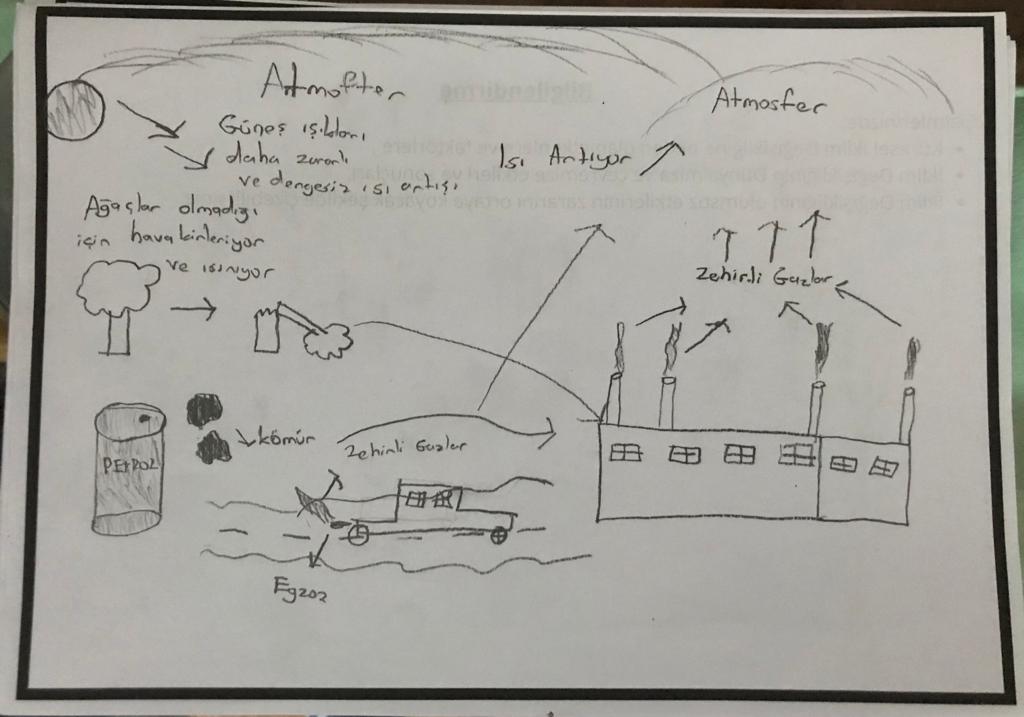 Atmofter
Atmosfer
Güneş ışıkları
daha zararlı
ve dengesiz ısı artışı
Isı Artıyor
Ağaçlar olmadığı
için hava kirleniyor
ve ısınıyor
Zehirli Gazlar
PETROL
kömür
Zehirli Gazlar
Egzoz